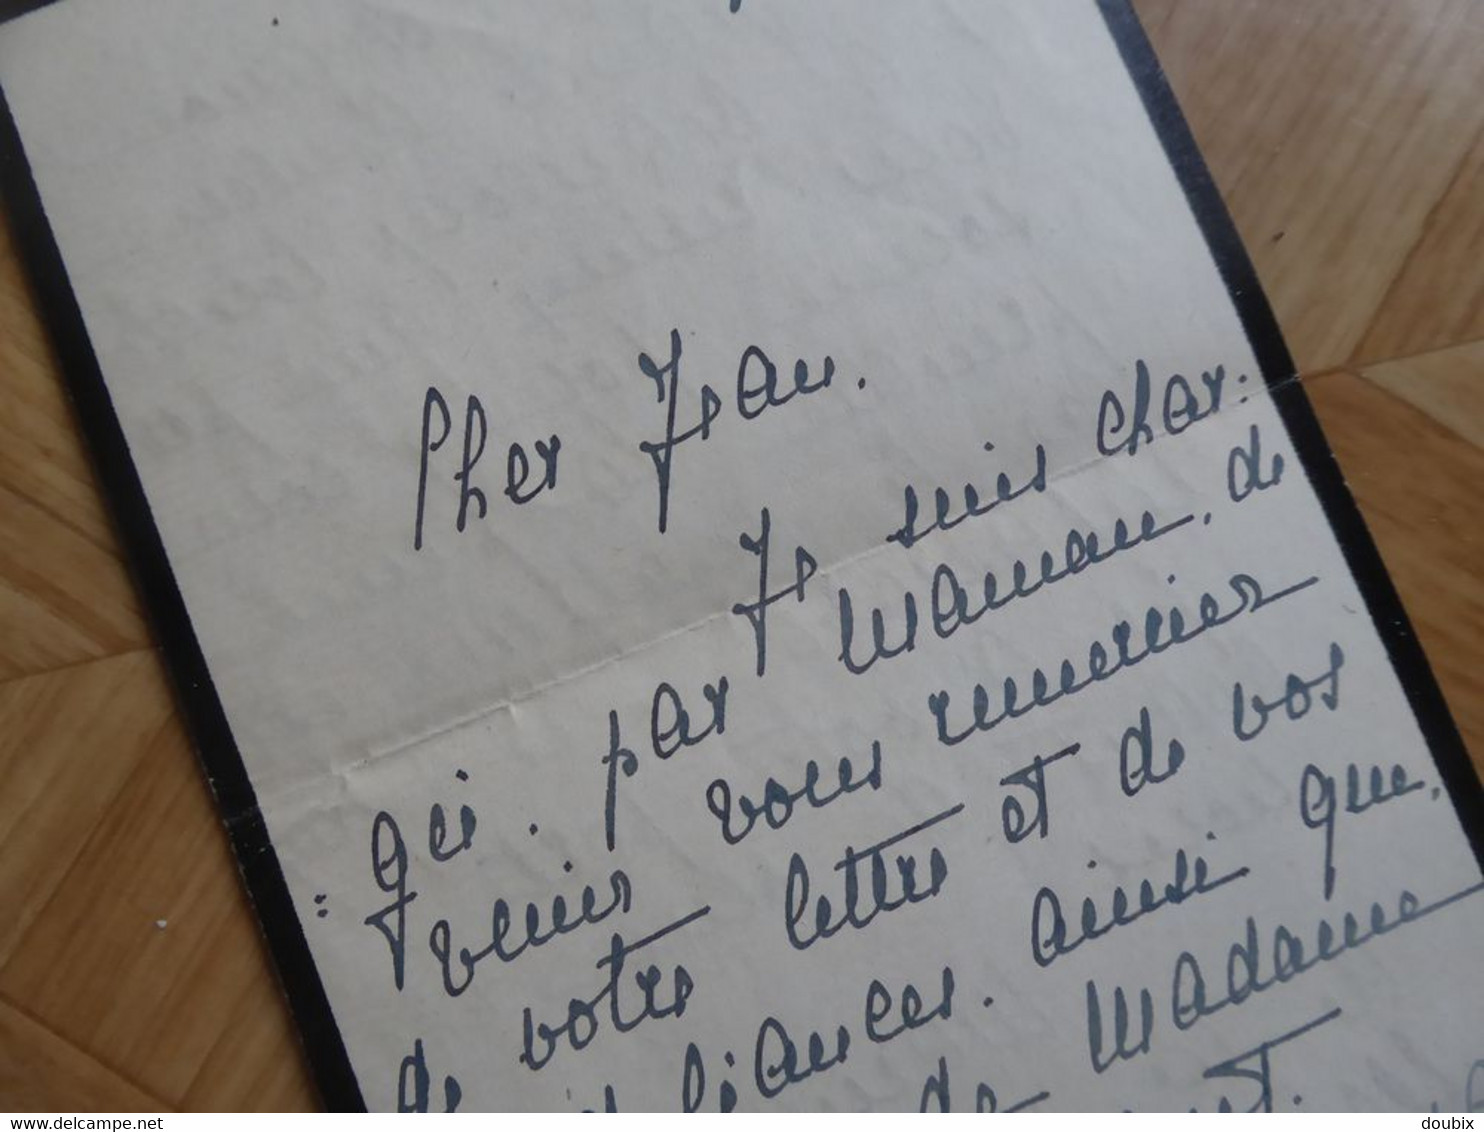 Cher Jean.
Je suis char:
:gée. par Maman. de
venir vous remercier
de votre lettre et de vos
ainsi que,
de Madame
www.delcampe.net
doubix